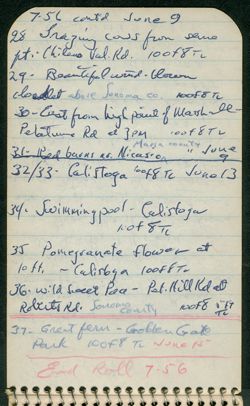 7-56 cont'd June 9
28 Grazing cows from same
pt. - Chileno Val. Rd. 100f8 TL
29 - Beautiful wind-blown
cloudlet above Sonoma co. 100f8 TL
30 - East from high point of Marshall-
Petaluma Rd at 3PM " 100f8 TL
Marin county
31 - Red barns nr. Nicasio " June 9
32/33 - Calistoga 100f8 TL June 13
34. Swimming pool - Calistoga
100f8 TL
35 Pomegranate flower at
10 ft. - Calistoga 100f8 TL
36. Wild Sweet Pea - Pet. Hill Rd at
Roberts Rd. Sonoma county 100f8 TL
37 - Great fern - Golden Gate
Park 100f8 TL June 15
End Roll 7-56